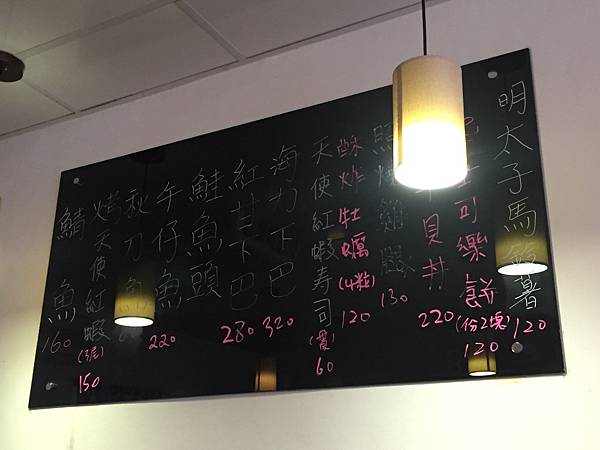 明太子馬鈴薯
120
起士可樂餅
(份2塊)
120
干貝丼
220
照燒雞腿
130
酥炸牡蠣(4粒)
120
天使紅蝦寿司(貫)
60
海力下巴
320
紅甘下巴
280
鮭魚頭
午仔魚
220
秋刀魚
烤天使紅蝦
(3尾)
150
鯖魚
160